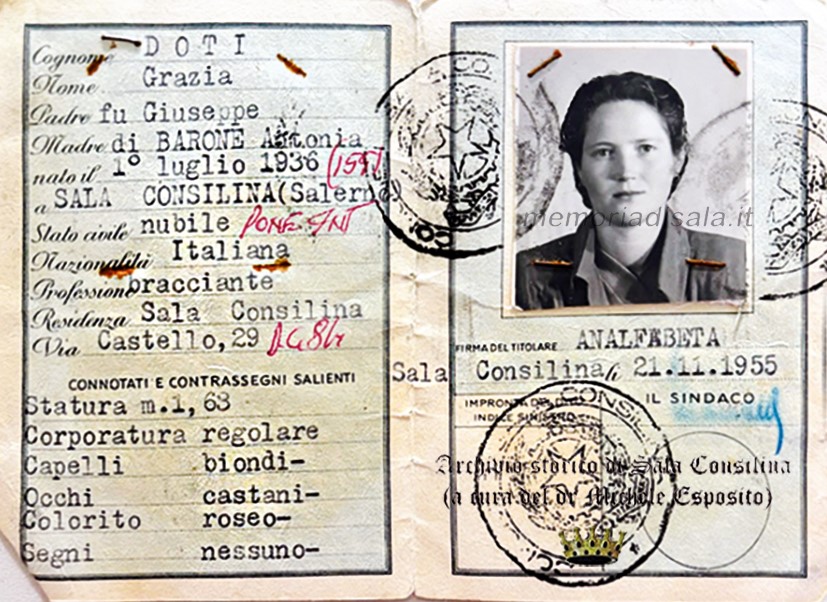 Cognome DOTI
Nome Grazia
Padre fu Giuseppe
Madre di BARONE Antonia
nato il 1° luglio 1936
a SALA CONSILINA (Salerno)
Stato civile nubile
Nazionalità Italiana
Professione bracciante
Residenza Sala Consilina
Via Castello, 29
CONNOTATI E CONTRASSEGNI SALIENTI
Statura m.1,63
Corporatura regolare
Capelli biondi-
Occhi castani-
Colorito roseo-
Segni nessuno-
memoriadisala.it
FIRMA DEL TITOLARE ANALFABETA
Sala Consilina li 21.11.1955
IMPRONTA DEL DITO
INDICE SINISTRO
IL SINDACO
Archivio storico di Sala Consilina
(a cura del dr Michele Esposito)